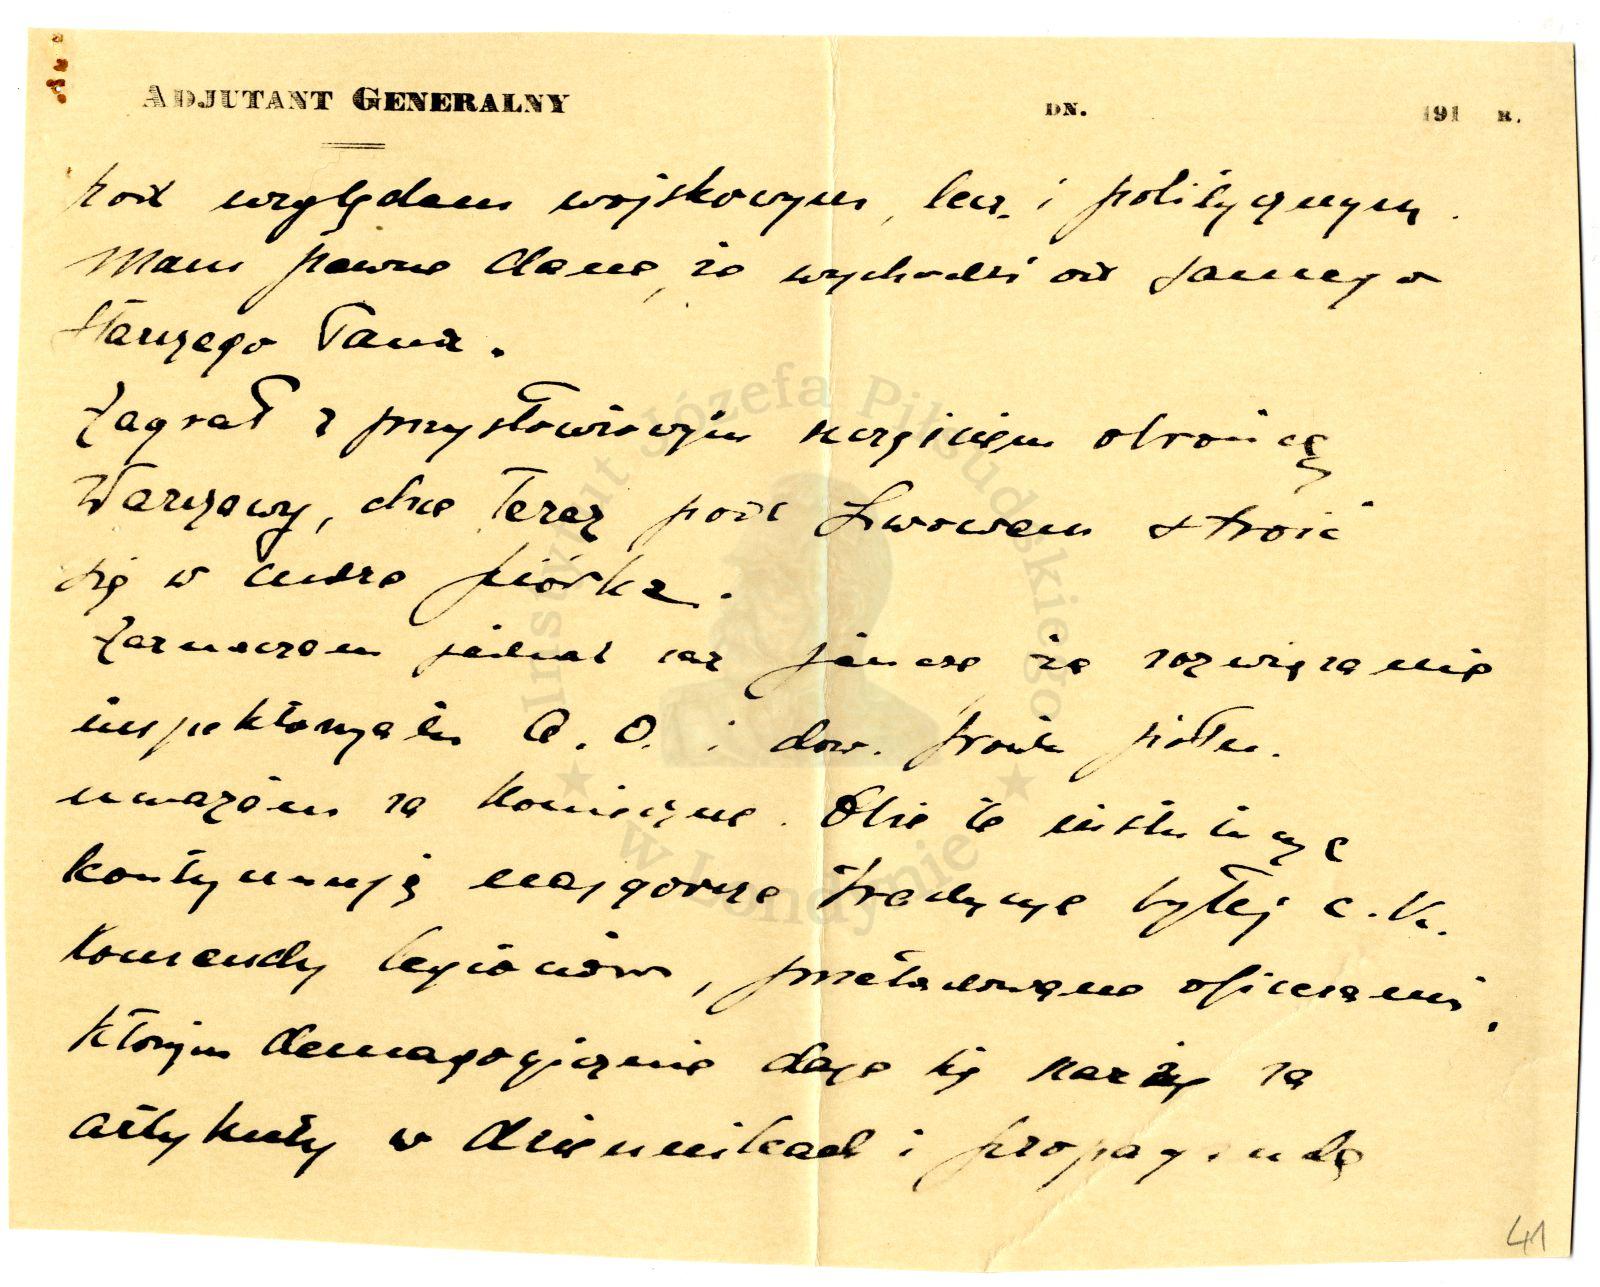 ADJUTANT GENERALNY
DN. 191 R.
pod względem wojskowym, lecz i politycznym.
Mam pewne dane, że wychodzi od samego
starszego Pana.
Zagrał z przysłowiowym szczęściem obrońcę
Warszawy, chce teraz pod Lwowem stroić
się w cudze piórka.
Zaznaczam jednak raz jeszcze że rozwiązanie
inspektoryatu A. O. i dow. frontu połtn.
uważam za konieczne. Obie te instytucye
kontynuują najgorsze tradycye byłej c. k.
Komendy legionów, przeładowane oficerami,
którym demagogicznie daje się na
artykuły w dziennikach i propagandę
41
Instytut Józefa Piłsudskiego
w Londynie